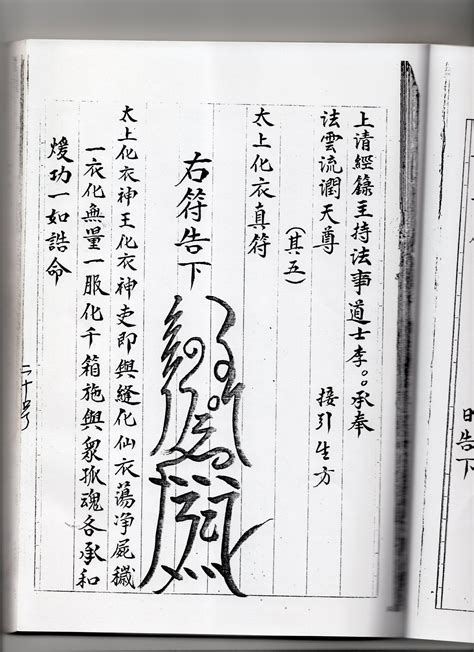 上清經籙主持法事道士李。。承奉
法雲流潤天尊　接引生方
（其五）
太上化衣真符
右符告下
太上化衣神王化衣神吏即與縫化仙衣蕩净屍穢
一衣化無量一服化千箱施與眾孤魂各承和
煖功一如誥命
二十号
告下